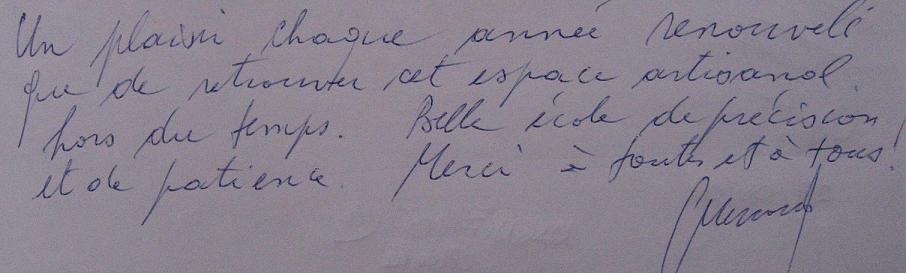 Un plaisir chaque année renouvelé
que de retrouver cet espace artisanal
hors du temps. Belle école de précision
et de patience. Merci à toutes et à tous!